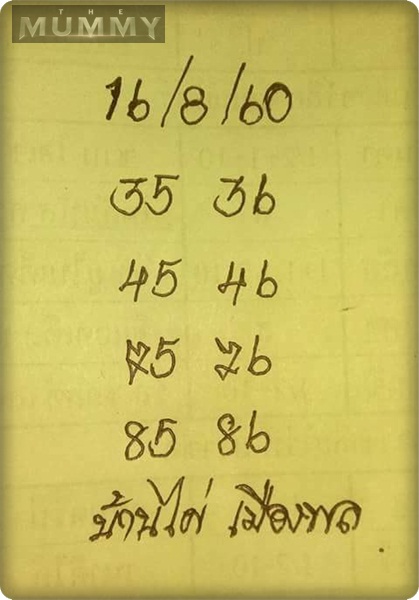 THE
MUMMY
16/8/60
35 36
45 46
75 76
85 86
บ้านไผ่ เมืองพล